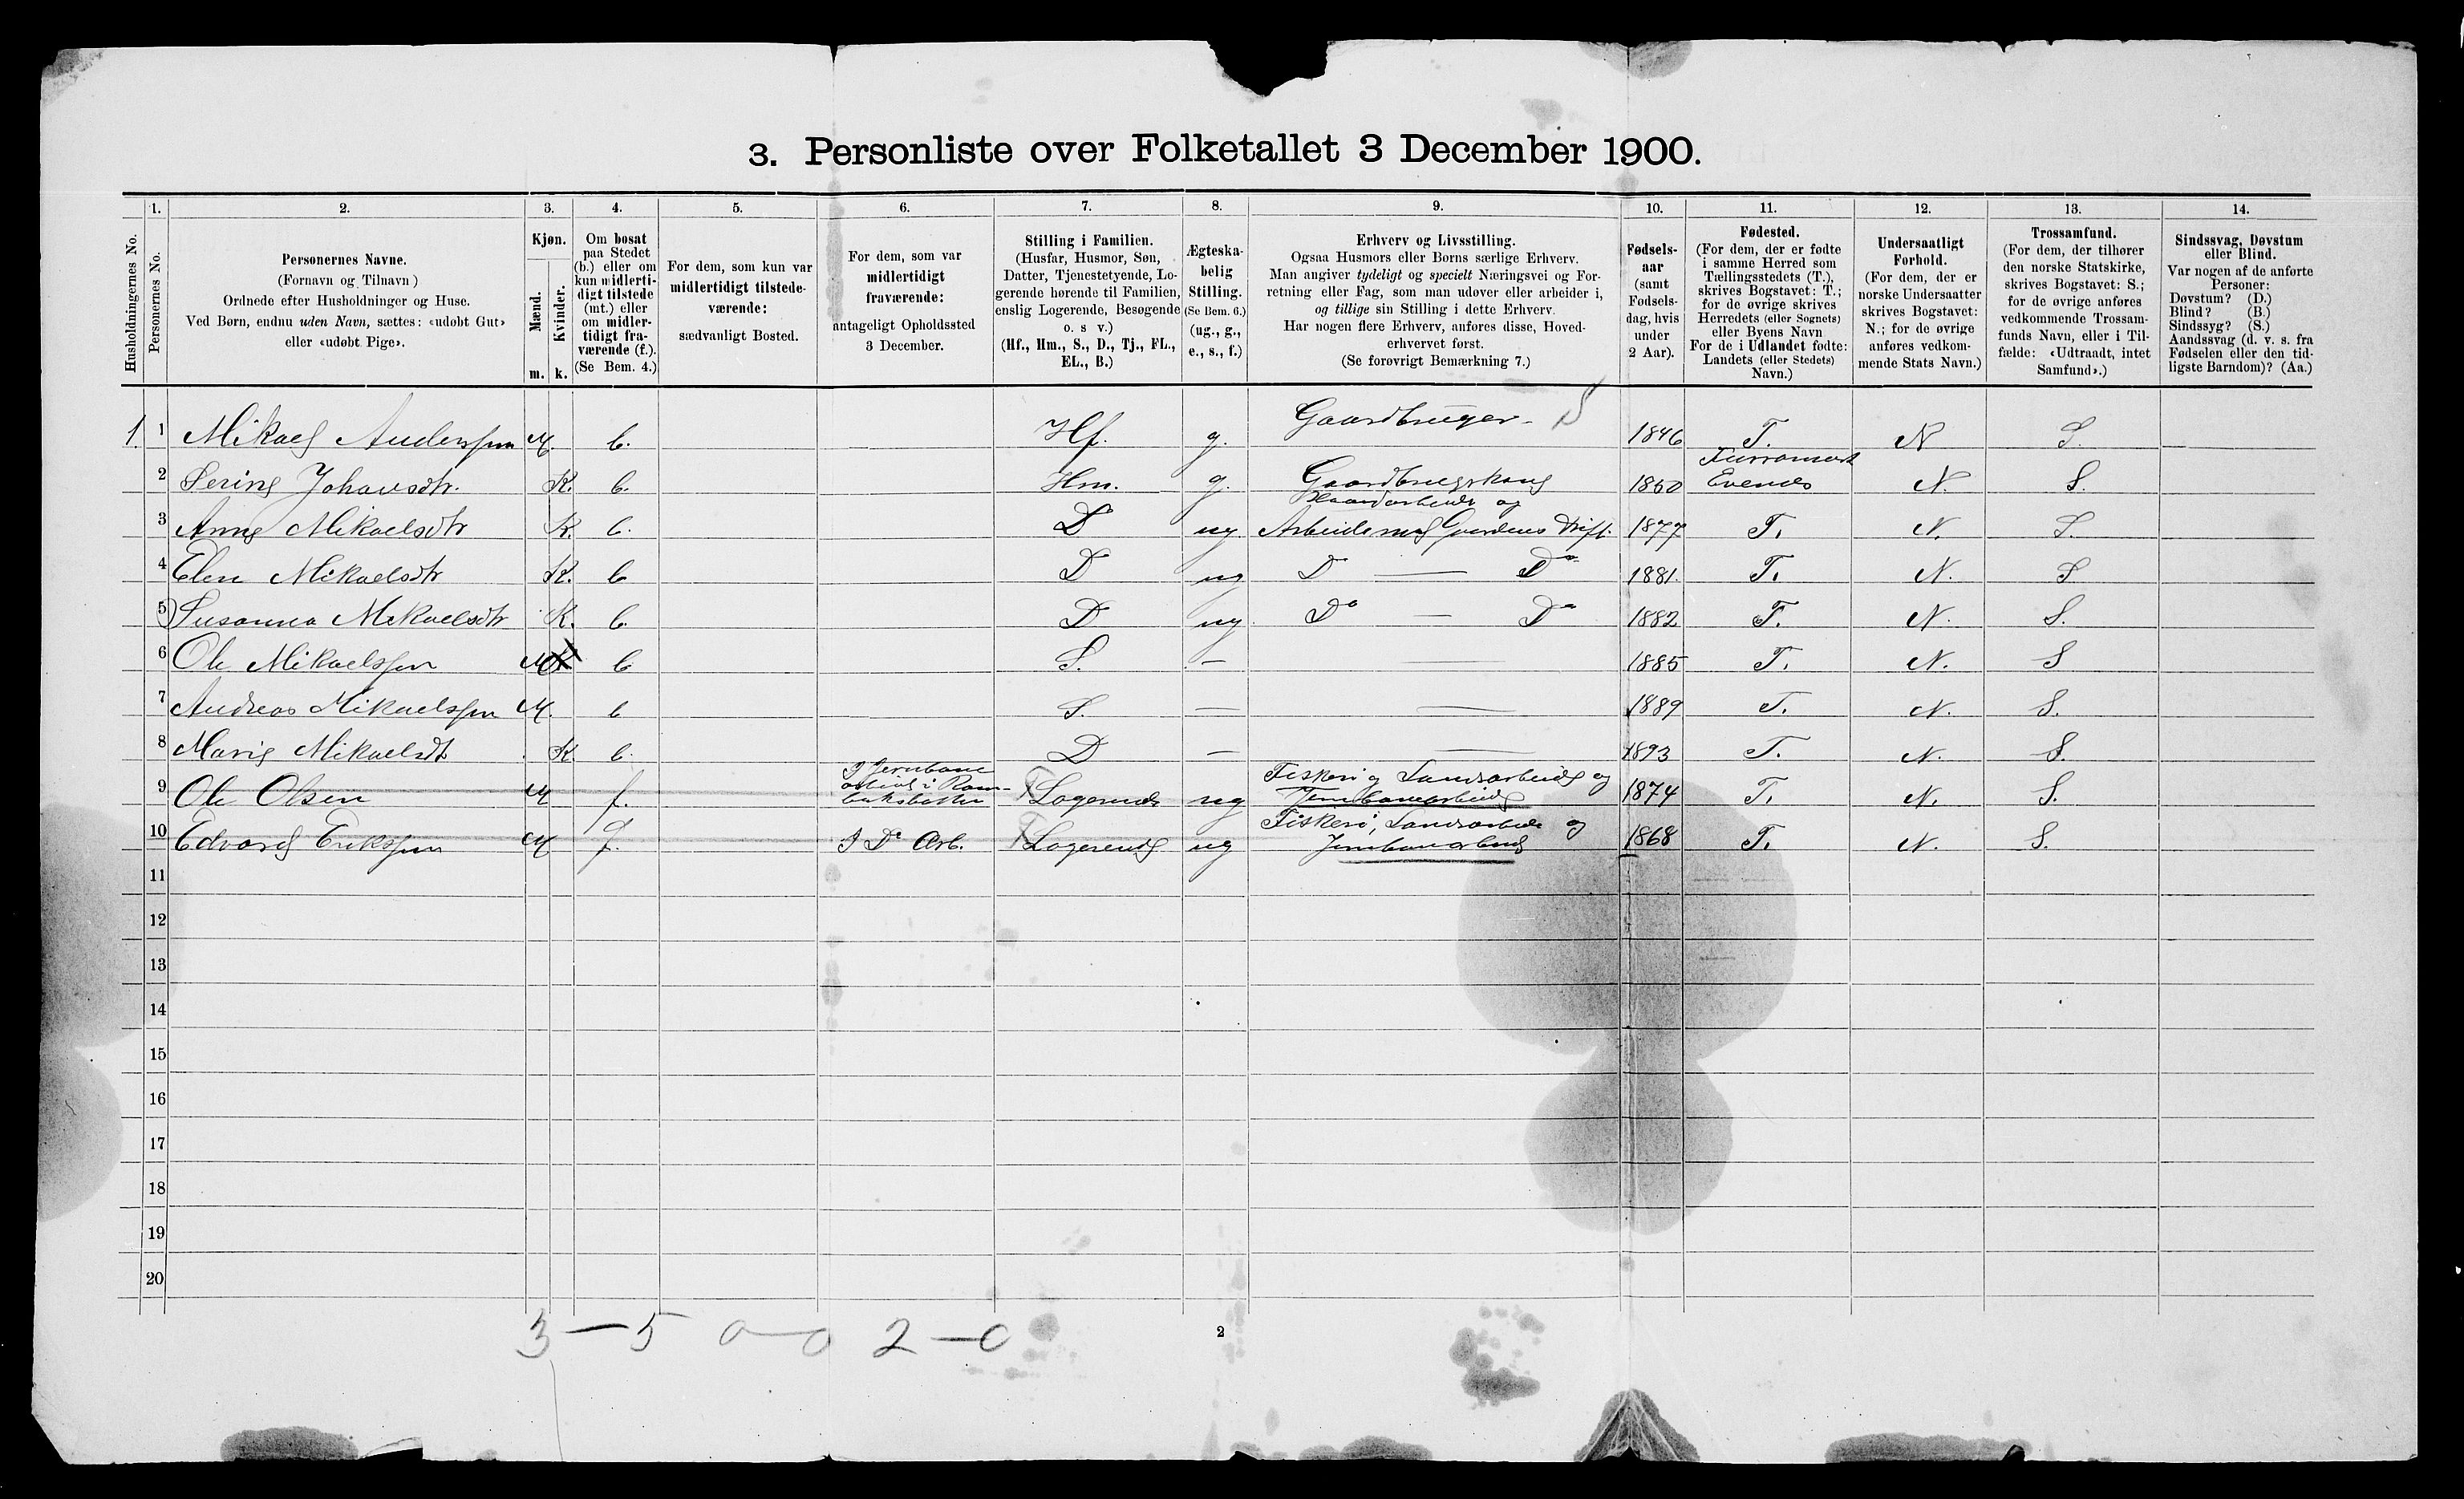 3. Personliste over Folketallet 3 December 1900.
Husholdningernes No.
1.
Personernes No.
2.
Personernes Navne.
(Fornavn og Tilnavn)
Ordnede efter Husholdninger og Huse.
Ved Børn, endnu uden Navn, sættes: «udøbt Gut»
eller «udøbt Pige».
3.
Kjøn.
Mænd.
Kvinder.
m.
k.
4.
Om bosat
paa Stedet
(b.) eller om
kun midlerti-
digt tilstede
(mt.) eller
om midler-
tidigt fra-
værende (f.).
(Se Bem. 4.)
5.
For dem, som kun var
midlertidigt tilstede-
værende:
sædvanligt Bosted.
6.
For dem, som var
midlertidigt
fraværende:
antageligt Opholdssted
3 December.
7.
Stilling i Familien.
(Husfar, Husmor, Søn,
Datter, Tjenestetyende, Lo-
gerende hørende til Familien,
enslig Logerende, Besøgende
o. s v.)
(Hf., Hm., S., D., Tj., FL.,
EL., B.)
8.
Ægteska-
belig
Stilling.
(Se Bem. 6.)
(ug., g.,
e., s., f.)
9.
Erhverv og Livsstilling.
Ogsaa Husmors eller Børns særlige Erhverv.
Man angiver tydeligt og specielt Næringsvei og For-
retning eller Fag, som man udøver eller arbeider i,
og tillige sin Stilling i dette Erhverv.
Har nogen flere Erhverv, anføres disse, Hoved-
erhvervet først.
(Se forøvrigt Bemærkning 7.)
10.
Fødsels-
aar
(samt
Fødsels-
dag, hvis
under
2 Aar).
11.
Fødested.
(For dem, der er fødte
i samme Herred som
Tællingsstedets (T.),
skrives Bogstavet: T.;
for de øvrige skrives
Herredets (eller Sognets)
eller Byens Navn
For de i Udlandet fødte:
Landets (eller Stedets)
Navn.)
12.
Undersaatligt
Forhold.
(For dem, der er
norske Undersaatter
skrives Bogstavet:
N.; for de øvrige
anføres vedkom-
mende Stats Navn.)
13.
Trossamfund.
(For dem, der tilhører
den norske Statskirke,
skrives Bogstavet: S.;
for de øvrige anføres
vedkommende Trossam-
funds Navn, eller i Til-
fælde: «Udtraadt, intet
Samfund».)
14.
Sindssvag, Døvstum
eller Blind.
Var nogen af de anførte
Personer:
Døvstum? (D.)
Blind? (B.)
Sindssyg? (S.)
Aandssvag (d. v. s. fra
Fødselen eller den tid-
ligste Barndom)? (Aa.)
1. 1 Mikael Anderssen M. b. Hf. g. Gaardbruger 1846 T. N S.
2 Sering Johansdtr. K. b. Hm. g. Gaardbrugskone 1850 Evenes N. S.
3 Anne Mikaelsdtr K. b. D ug Haandarbeide og
Arbeide med Gaardens Drift. 1877 T. N. S.
4 Elen Mikaelsdtr K. b D ug Do — Do 1881. T. N. S
5 Susanna Mikaelsdtr K. b. D ug Do — Do 1882 T. N. S.
6 Ole Mikaelssen M b S. — — 1885 T. N. S
7 Andreas Mikaelssen M. b S. — — 1889 T. N. S.
8 Marie Mikaelsdt K b. D — — 1893 T. N. S.
9 Ole Olsen M f. I Jernbane
arbeide i Rom-
baksbotten Logerende ug Fiskeri og Landsarbeide og
Jernbanearbeide 1874 T. N. S.
10 Edvard Erikssen M f. I Do Arb. Logerende ug Fiskeri, Landsarbeide og
Jernbanearbeide 1868 T. N. S.
11
12
13
14
15
16
17
18
19
20
3 — 5 0 — 0 2 — 0
2